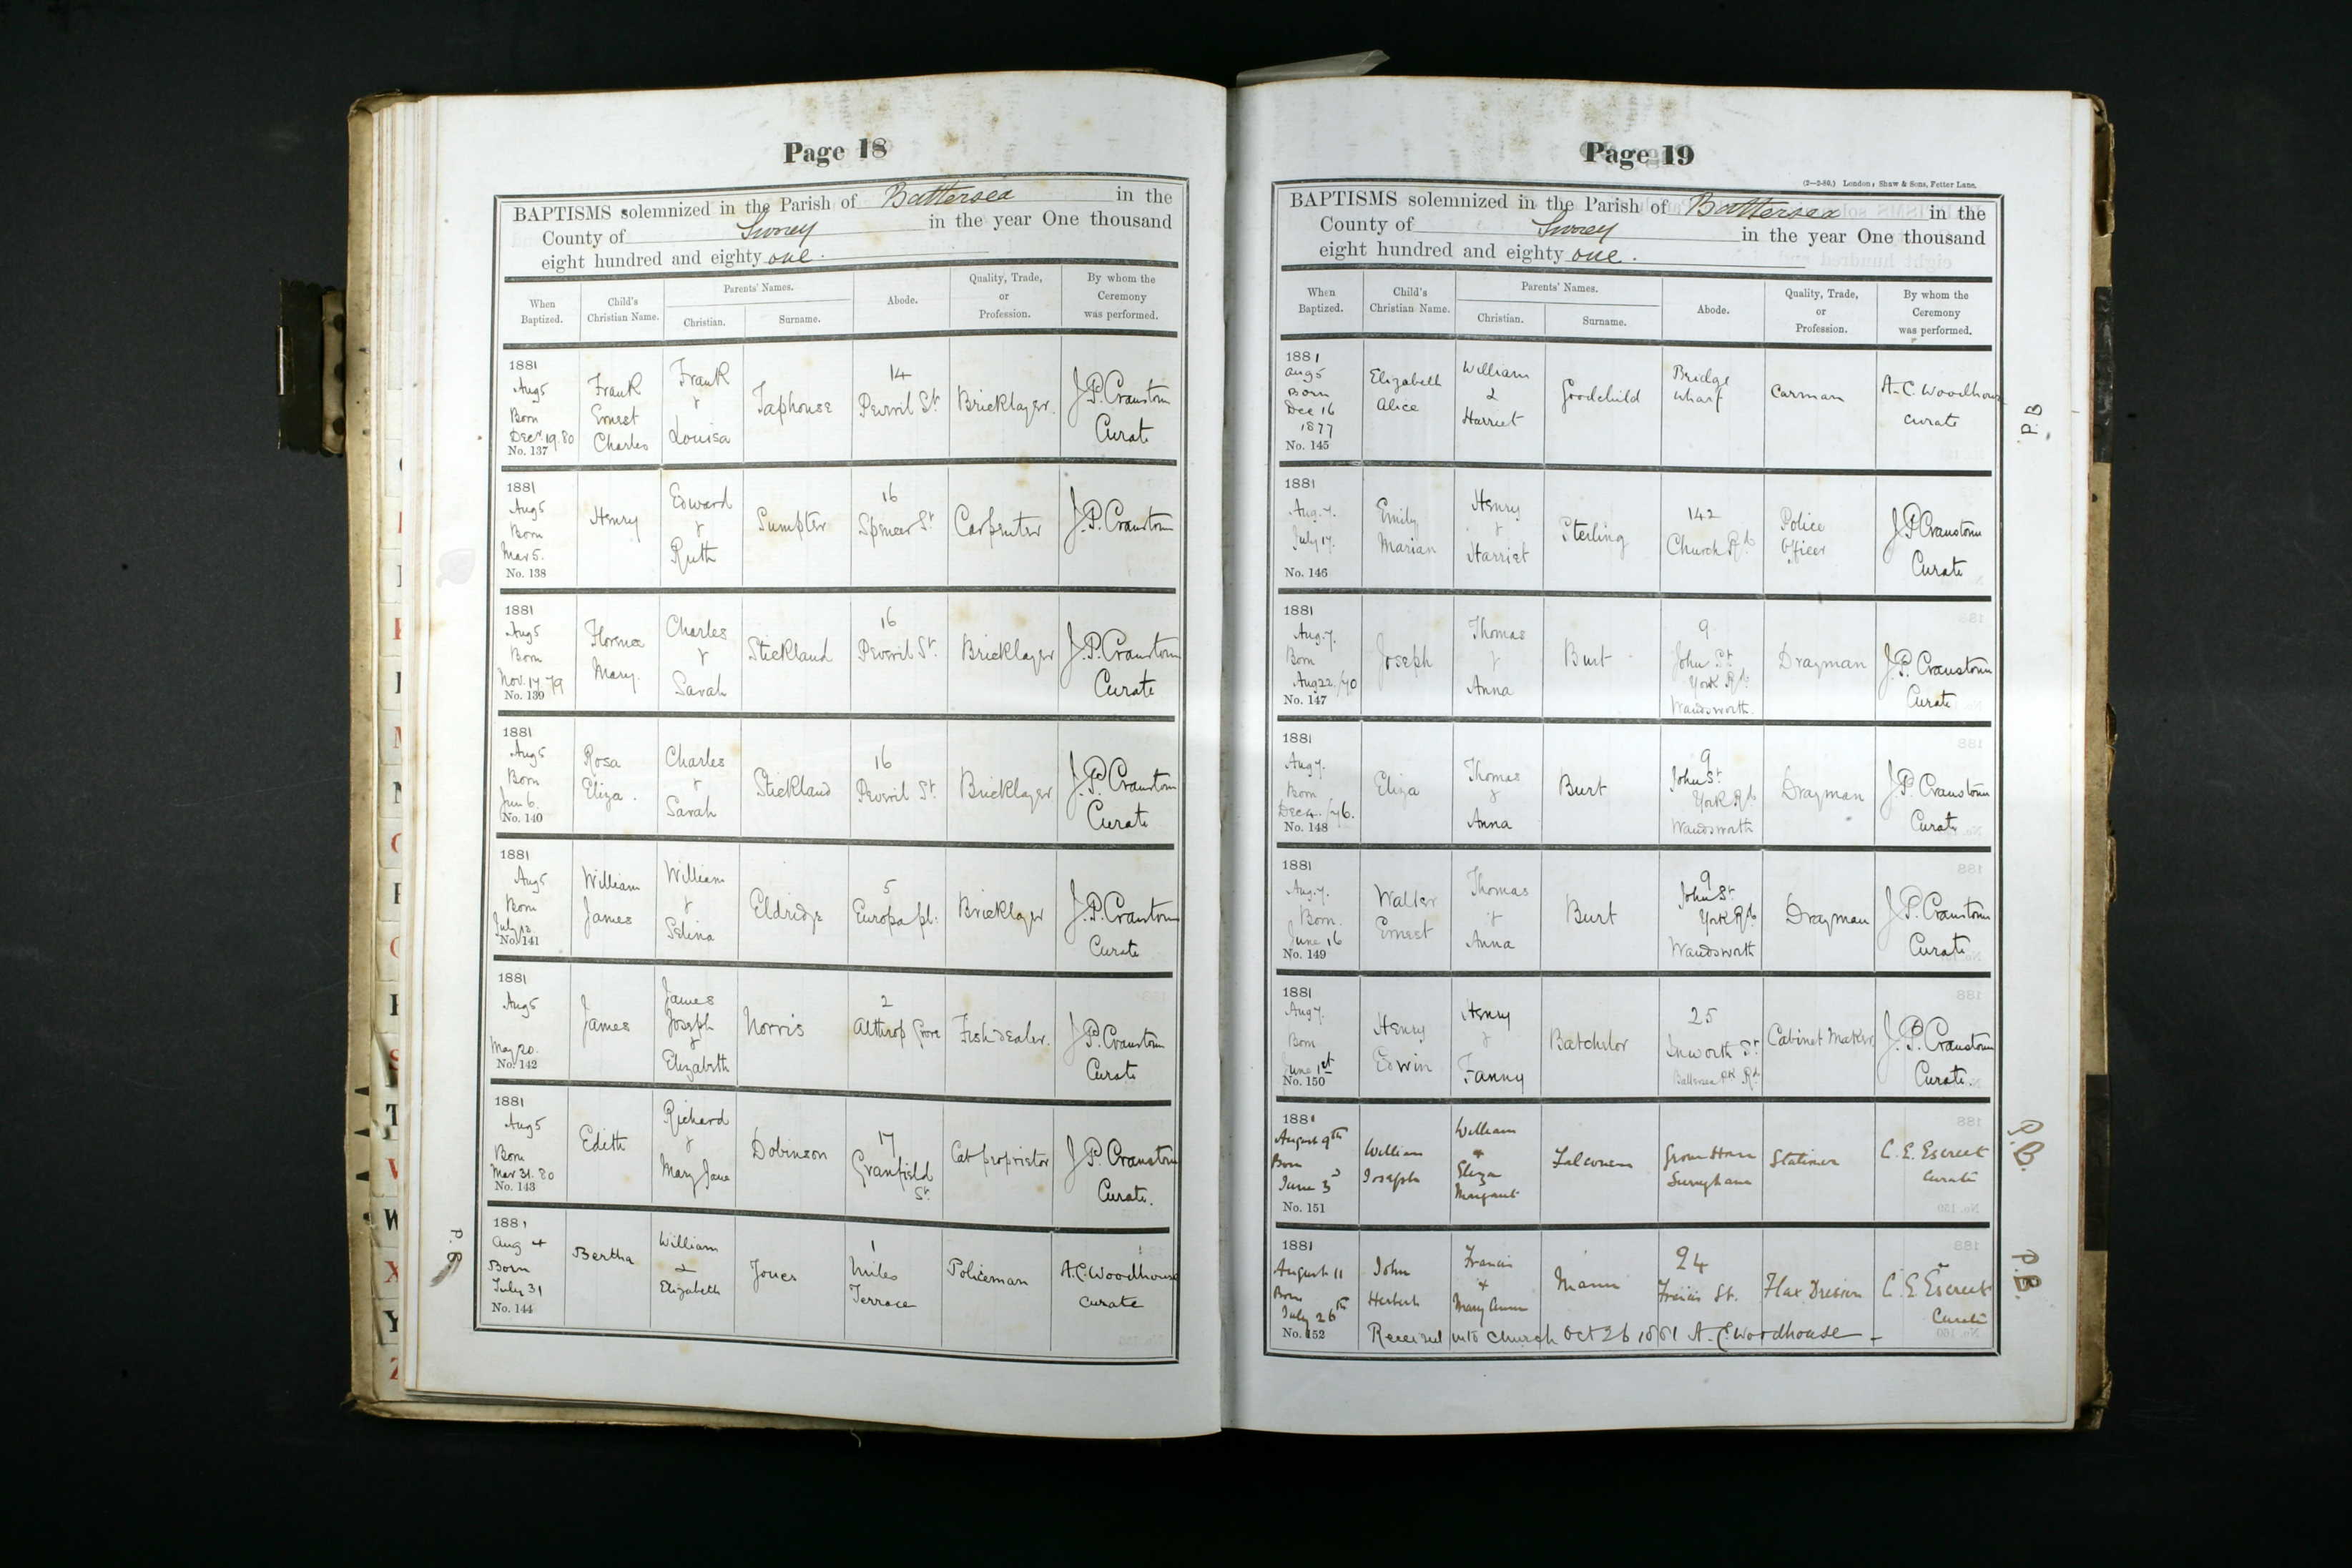 Page 18
BAPTISMS solemnized in the Parish of Battersea in the
County of Surrey in the year One thousand
eight hundred and eighty one.
When Baptized.
Child's Christian Name.
Parents' Names.
Christian.
Surname.
Abode.
Quality, Trade, or Profession.
By whom the Ceremony was performed.
1881
Aug 5
Born
Decr. 19. 80
No. 137
Frank
Ernest
Charles
Frank
&
Louisa
Taphouse
14
Peveril St.
Bricklayer.
J.P. Cranstoun
Curate
1881
Aug 5
Born
Mar 5.
No. 138
Henry
Edward
&
Ruth
Sumpter
16
Spencer St
Carpenter
J.P. Cranstoun
1881
Aug 5
Born
Nov. 17 79
No. 139
Florence
Mary.
Charles
&
Sarah
Stickland
16
Peveril St.
Bricklayer
J.P. Cranstoun
Curate
1881
Aug 5
Born
Jun 6.
No. 140
Rosa
Eliza.
Charles
&
Sarah
Stickland
16
Peveril St.
Bricklayer
J.P. Cranstoun
Curate
1881
Aug 5
Born
July
No. 141
William
James
William
&
Selina
Eldridge
5
Europa pl.
Bricklayer
J.P. Cranstoun
Curate
1881
Aug 5
May 20.
No. 142
James
James
Joseph
&
Elizabeth
Norris
2
Althrop Grove
Fish dealer.
J.P. Cranstoun
Curate
1881
Aug 5
Born
Mar 31. 80
No. 143
Edith
Richard
&
Mary Jane
Dobinson
17
Granfield
St.
Cab proprietor
J.P. Cranstoun
Curate.
1881
Aug 4
Born
July 31
No. 144
Bertha
William
&
Elizabeth
Jones
1
Miles
Terrace
Policeman
A.C. Woodhouse
curate
P.B
Page 19
(2—2-80.) London: Shaw & Sons, Fetter Lane.
BAPTISMS solemnized in the Parish of Battersea in the
County of Surrey in the year One thousand
eight hundred and eighty one.
When Baptized.
Child's Christian Name.
Parents' Names.
Christian.
Surname.
Abode.
Quality, Trade, or Profession.
By whom the Ceremony was performed.
1881
Aug 5
Born
Dec 16
1877
No. 145
Elizabeth
Alice
William
&
Harriet
Goodchild
Bridge
Wharf
Carman
A.C. Woodhouse
curate
P.B
1881
Aug. 7.
July 17.
No. 146
Emily
Marian
Henry
&
Harriet
Sterling
142
Church Rd
Police
Officer
J.P. Cranstoun
Curate
1881
Aug. 7.
Born
Aug 22. /70
No. 147
Joseph
Thomas
&
Anna
Burt
9
John St
York Rd
Wandsworth.
Drayman
J.P. Cranstoun
Curate
1881
Aug 7.
Born
Dec 4. /76.
No. 148
Eliza
Thomas
&
Anna
Burt
9
John St
York Rd
Wandsworth
Drayman
J.P. Cranstoun
Curate
1881
Aug. 7.
Born.
June 16
No. 149
Walter
Ernest
Thomas
&
Anna
Burt
9
John St.
York Rd
Wandsworth
Drayman
J.P. Cranstoun
Curate
1881
Aug 7.
Born
June 1st
No. 150
Henry
Edwin
Henry
&
Fanny
Batchelor
25
Inworth St
Battersea Pk Rd
Cabinet Maker.
J.P. Cranstoun
Curate.
1881
August 9th
Born
June 3d
No. 151
William
Joseph
William
+
Eliza
Margaret
Falconer
Stationer
C. E. Escreet
Curate
P.B.
1881
August 11
Born
July 26th
No. 152
John
Herbert
Francis
+
Mary Anne
Mann
24
Francis St.
Flax Dresser
C. E. Escreet
Curate
Received into Church Oct 26 1881 A.C. Woodhouse
P.B.